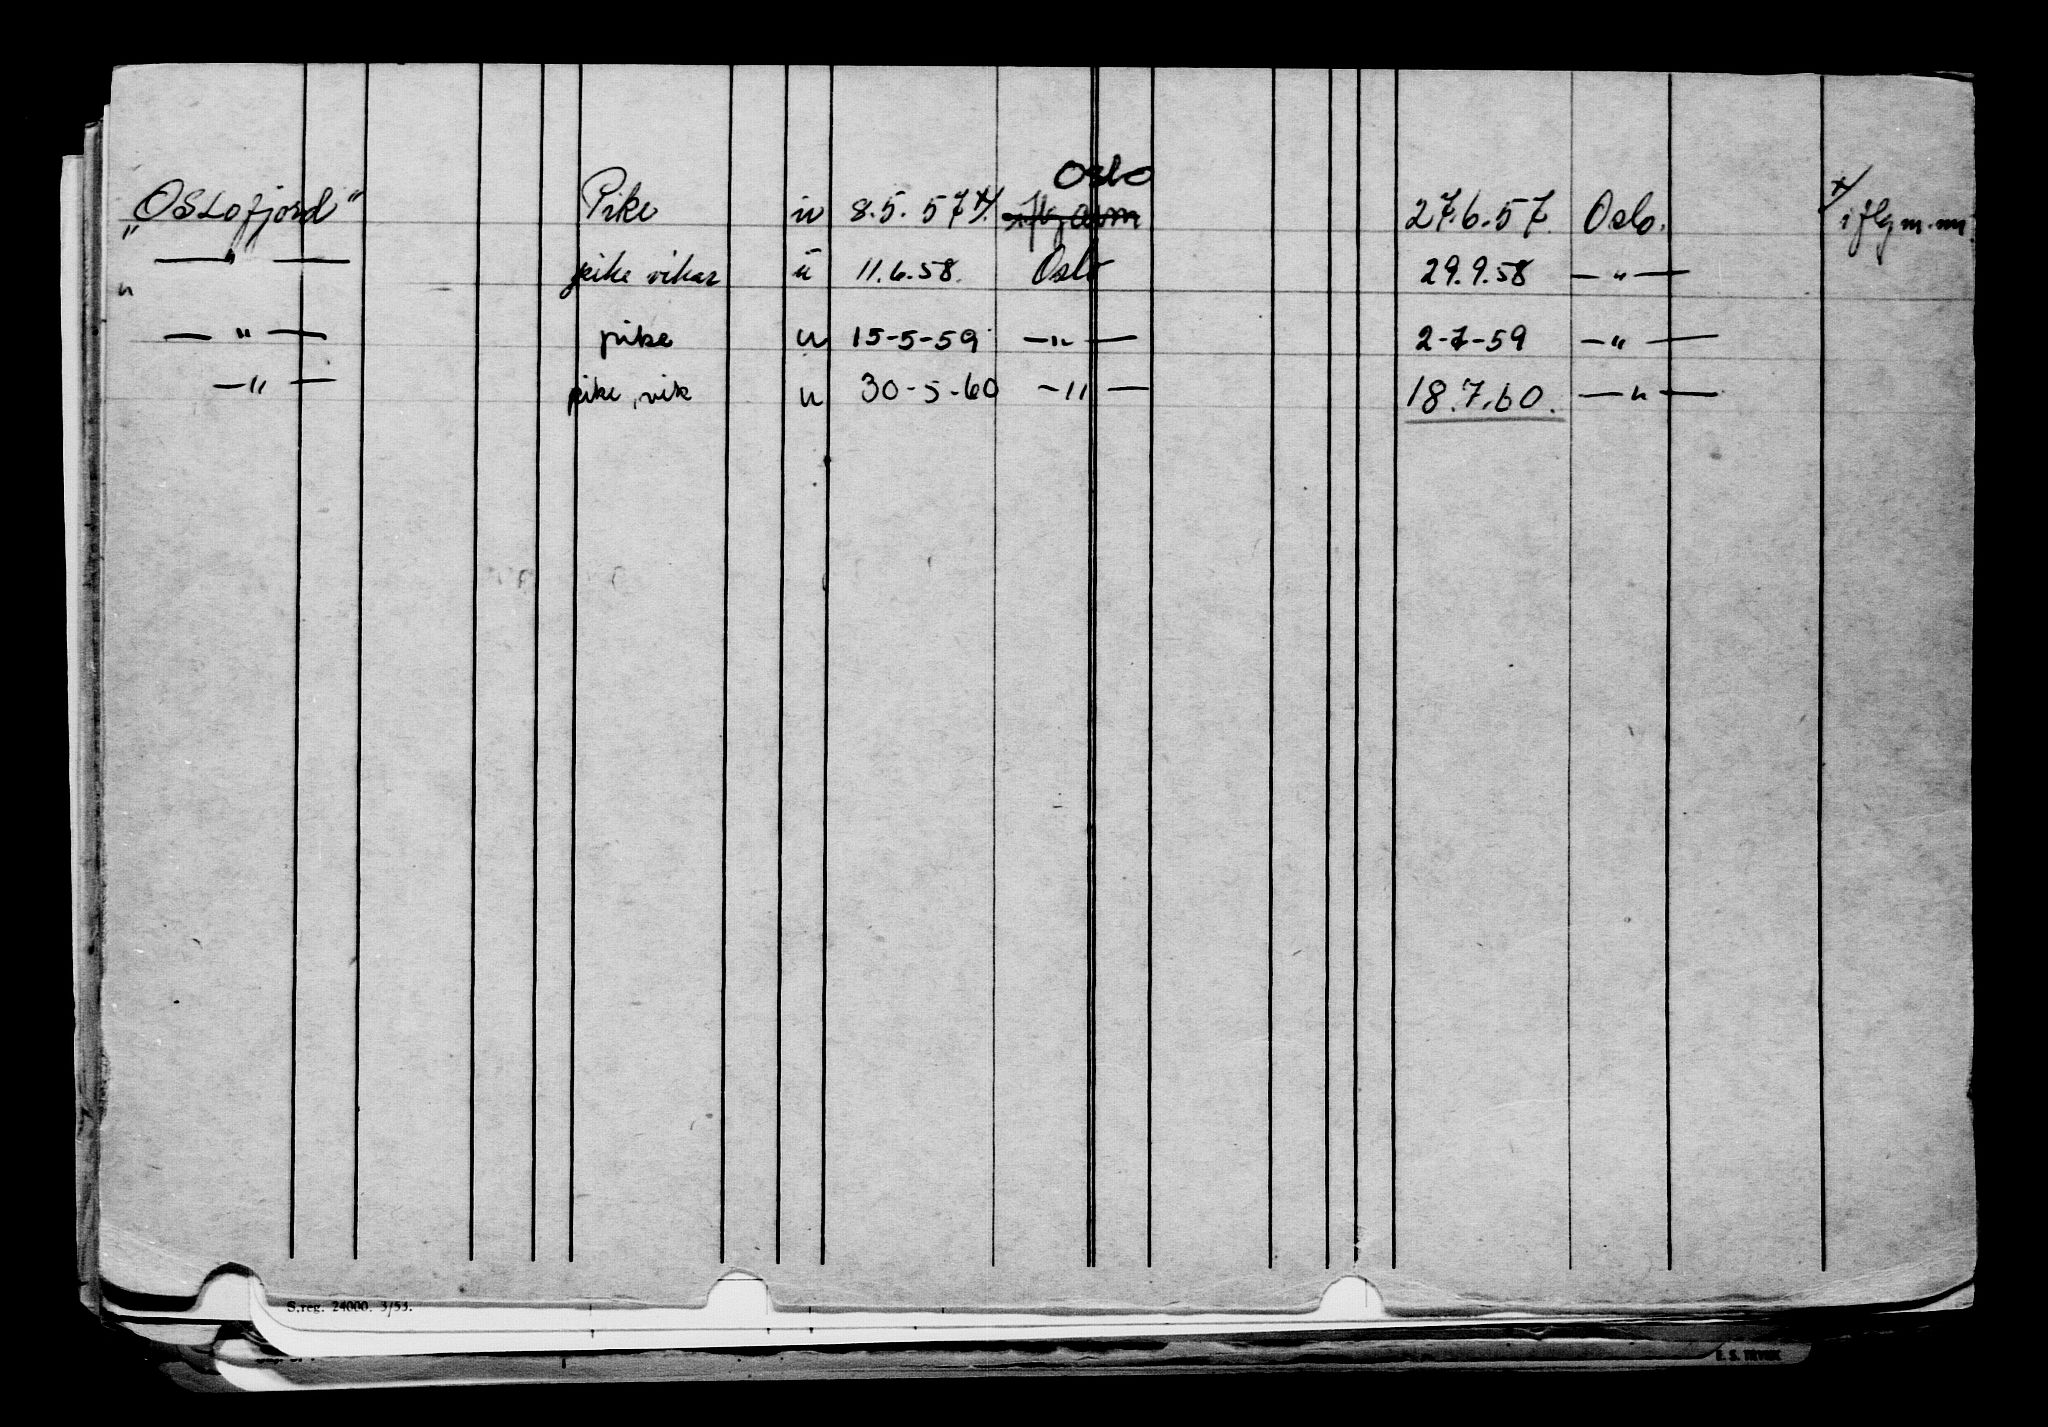 Oslo
"Oslofjord" Pike u 8.5.57 x/. 27.6.57. Oslo. x/ i flg m.
— " — pike vikar u 11.6.58. Oslo 29.9.58 — " —
— " — pike u 15-5-59 — " — 2-7-59 — " —
— " — pike, vik u 30-5-60 — " — 18.7.60. — " —
S.reg. 24000. 3/53.